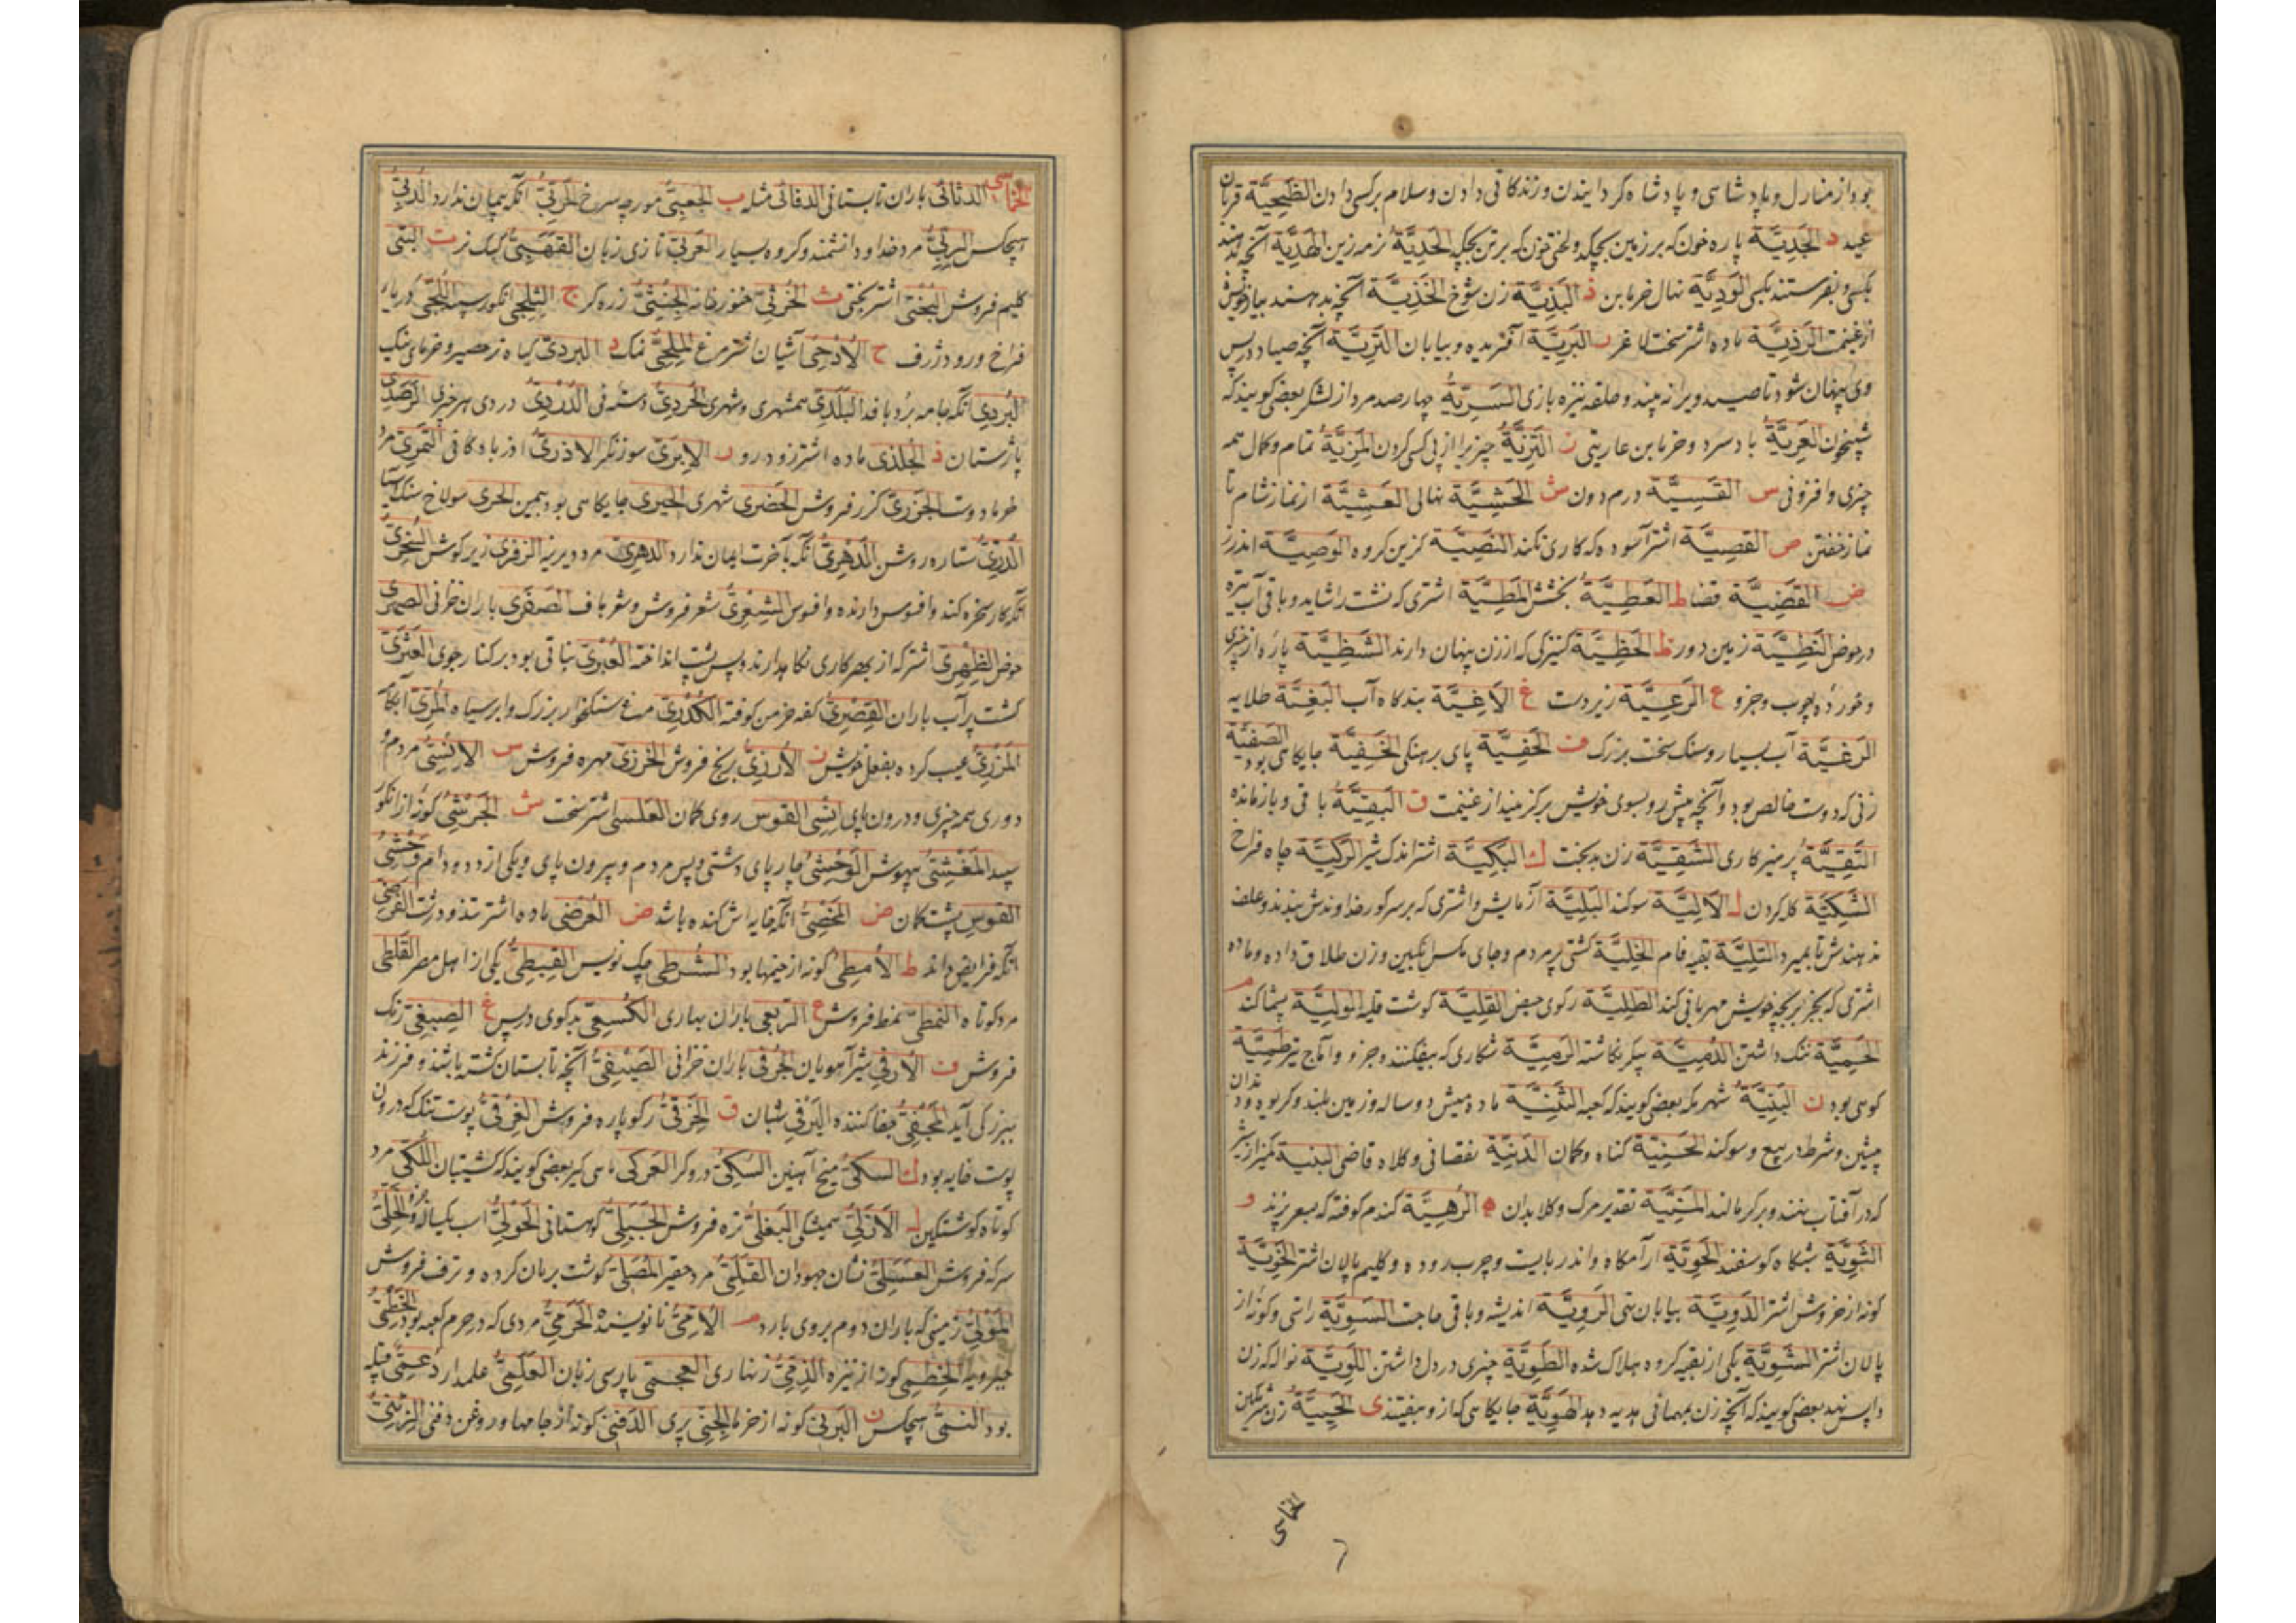 بود از منازل و پادشاهی و پادشاه کردانیدن و زندکانی دادن و سلام بر کسی دادن الضَّحِيَّة قربان
عید د الجَدِيَّة پاره خون که بر زمین بچکد ولختی خون که بر تن بچکد الهَدِيَّة آنچه
الوَدِيَّة نهال خرما بن ذ البَذِيَّة زن شوخ الخَذِيَّة آنچه بدهند
از غنیمت الرَّذِيَّة ماده اشتر سخت لاغر ر البَرِيَّة آفریده و بیابان الدَّرِيَّة آنچه صیاد در پس
وی پنهان شود تا صید ویرا نه بیند و حلقه نیزه بازی السَّرِيَّة چهارصد مرد از لشکر بعضی کویند که
شبیخون العَرِيَّة باد سرد و خرما بن عاریتی ز المَزِيَّة تمام و کمال همه
چیزی و افزونی س القَسِيَّة درم دون ش الحَشِيَّة نهالی العَشِيَّة از نماز شام تا
نماز خفتن ص القَصِيَّة اشتر آسوده که کاری نکند النَّصِيَّة کزین کروه الوَصِيَّة اندرز
ض القَضِيَّة قضا ط العَطِيَّة بخشش المَطِيَّة اشتری که نشست را شاید و باقی آب تیره
در حوض النَّطِيَّة زمین دور ظ الحَظِيَّة کنیزکی که از زن پنهان دارند الشَّظِيَّة پاره از چیزی
و خورده چوب و جزو ع الرَّعِيَّة زیر دست غ الآغِيَّة بندکاه آب البَغِيَّة طلایه
الرَّغِيَّة آب بسیار و سنک سخت بزرک ف الحَفِيَّة پای برهنکی الخَفِيَّة جایکاهی بود الصَّفِيَّة
زنی که دوست خالص بود و آنچه پیش رو بسوی خویش برکزیند از غنیمت ق البَقِيَّة باقی و بازمانده
التَّقِيَّة پرهیزکاری الشَّقِيَّة زن بدبخت ك البَكِيَّة اشتر اندک شیر الرَّكِيَّة چاه فراخ
الشَّكِيَّة کله کردن ل الآلِيَّة سوکند البَلِيَّة آزمایش و اشتری که بر سر کور خداوندش ببندند و علف
ندهندش تا بمیرد التَّلِيَّة بقیه فام الخَلِيَّة کشتی پر مردم و جای مکس انکبین و زن طلاق داده و ماده
اشتری که بجز بر بچه خویش مهربانی کند الطَّلِيَّة رکوی حیض القَلِيَّة کوشت قلیه الوَلِيَّة پشماکند م
الحَمِيَّة ننک داشتن الدُّمِيَّة پیکر نکاشته الرَّمِيَّة شکاری که بیفکنند و جزو و آماج تیر طَمِيَّة
کوهی بود ن البَنِيَّة شهر مکه بعضی کویند که کعبه الثَّنِيَّة ماده میش دو ساله و زمین بلند و کریوه و دندان
پیشین و شرط در بیع و سوکند الحَنِيَّة کناه و کمان الدَّنِيَّة نقصانی و کلاه قاضی
که در آفتاب نهند و برکرمالند المَنِيَّة تقدیر مرک و کلابدان ه الرَّهِيَّة کندم کوفته که بشیر پزند و
الثَّوِيَّة شبکاه کوسفند الحَوِيَّة آرامکاه و اندر بایست و چرب روده و کلیم پالان اشتر الخَوِيَّة
کونه از خروش اشتر الدَّوِيَّة بیابان تهی الرَّوِيَّة اندیشه و باقی حاجت السَّوِيَّة راستی و کونه از
پالان اشتر الشَّوِيَّة یکی از بقیه کروه هلاک شده الطَّوِيَّة چیزی در دل داشتن اللَّوِيَّة نواله که زن
واپس نهد بعضی کویند که آنچه زن بمهمانی هدیه دهد الهَوِيَّة جایکاهی که از و بیفتند ی الحَيِيَّة زن شرمکین
الخماسی
الخماسی الدثائی باران تابستانی الدفائی مثله ب الجعبیّ مورچه سرخ المرتبیّ آنکه پیمان ندارد الدُّبِّيّ
هیچکس الرِّبِّيّ مرد خدا و دانشمند و کروه بسیار العَرَبِيّ تازی زبان القَهْبِيّ کبک نر ت البَتِّيّ
کلیم فروش البُخْتِيّ اشتر بختی ث الخُرْثِيّ خنور خانه الجِنْثِيّ زره کر ج الثَّلْجِيّ انکور سپید اللُّجِّيّ دریای
فراخ و رود ژرف ح الأُدْحِيّ آشیان اشتر مرغ المِلْحِيّ نمک د البَرْدِيّ کیاه نر حصیر و خرمای نیک
البُرْدِيّ آنکه جامه برد بافد البَلَدِيّ همشهری و شهری الحُرْدِيّ دسته نی الدُّرْدِيّ دردی هر چیزی الرَّصَدِيّ
پازستان ذ الجُلْذِيّ ماده اشتر زود رو ر الإبَرِيّ سوزنکر الأذرِيّ اذربادکانی التَّمْرِيّ مرد
خرما دوست الجَزَرِيّ کزر فروش الحَضَرِيّ شهری الحِيرِيّ جایکاهی بود بیمن الحری سولاخ سنک آسیا
الدُّرِّيّ ستاره روشن الدَّهْرِيّ آنکه بآخرت ایمان ندارد الدُّهْرِيّ مرد دیرینه الزفری زیر کوش السُّخْرِيّ
آنکه کار سخره کند و افسوس دارنده و افسوس الشِّعْرِيّ شعر فروش و شعر باف الصَّفَرِيّ باران خزانی
حوض الظِّهْرِيّ اشتر که از بهر کاری نکاهدارند و پس پشت انداخته العُبْرِيّ نباتی بود بر کنار جوی العَثَرِيّ
کشت پر آب باران القِصْرِيّ کفه خرمن کوفته الكُدْرِيّ مرغ سنکخوار بزرک و ابر سیاه المُرِّيّ آبکامه
المَزْرِيّ عیب کرده بفعل خویش ز الأُرُزِّيّ برنج فروش الخَرَزِيّ مهره فروش س الإنْسِيّ مردم و
دوری همه چیزی و درون پای إنْسِيّ القوس روی کمان العَلَسِيّ اشتر سخت ش الجُرَشِيّ کونه از انکور
سپید المَغْشِيّ بیهوش الوَحْشِيّ چارپای دشتی و پس مردم و بیرون پای و یکی از دد و دام وَحْشِيّ
القوس پشت کمان ص المَخْصِيّ آنکه خایه اش کنده باشد ض العُرْضِيّ ماده اشتر تند و درشت الفَرَضِيّ
آنکه فرایض داند ط الأُمْطِيّ کونه از صمغها بود الشُّرَطِيّ چک نویس القِبْطِيّ یکی از اهل مصر القَلَطِيّ
مرد کوتاه النَّمَطِيّ نمط فروش ع الرَّبْعِيّ باران بهاری الكُسْعِيّ بدکوی در پس غ الصِّبْغِيّ رنک
فروش ف الأُرْفِيّ شیر آهویان الخَرْفِيّ باران خزانی الصَّيْفِيّ آنچه تابستان کشته باشند و فرزند
ببزرکی آید المَجْفِيّ جفا کننده شبان ق الخِرَقِيّ رکو پاره فروش الغِرْقِيّ پوست تنک که درون
پوست خایه بود ك السَّكِّيّ میخ آهنین السِّكِّيّ درودکر العَرَكِيّ ماهی کیر بعضی کویند که کشتیبان اللُّكِّيّ مرد
کوتاه کوشتکین ل الأزَلِيّ همیشکی البَقْلِيّ تره فروش الجَبَلِيّ کوهستانی الحَوْلِيّ اسب یکساله الخَلِّيّ
سرکه فروش العَسَلِيّ نشان جهودان القَمَلِيّ مرد حقیر المَصْلِيّ کوشت بریان کرده و ترف فروش
المَوْلِيّ زمینی که باران دوم بروی بارد م الأُمِّيّ نانویسنده الحَرَمِيّ مردی که در حرم کعبه بود
الخَطْمِيّ کونه از نیزه الذِّمِّيّ زنهاری العَجَمِيّ پارسی زبان العَلَمِيّ علمدار
بود النُّمِّيّ هیچکس ن البَرْنِيّ کونه از خرما الجِنِّيّ پری الدَّفَنِيّ کونه از جامها و روغن دفنی الزِّئْنِيّ